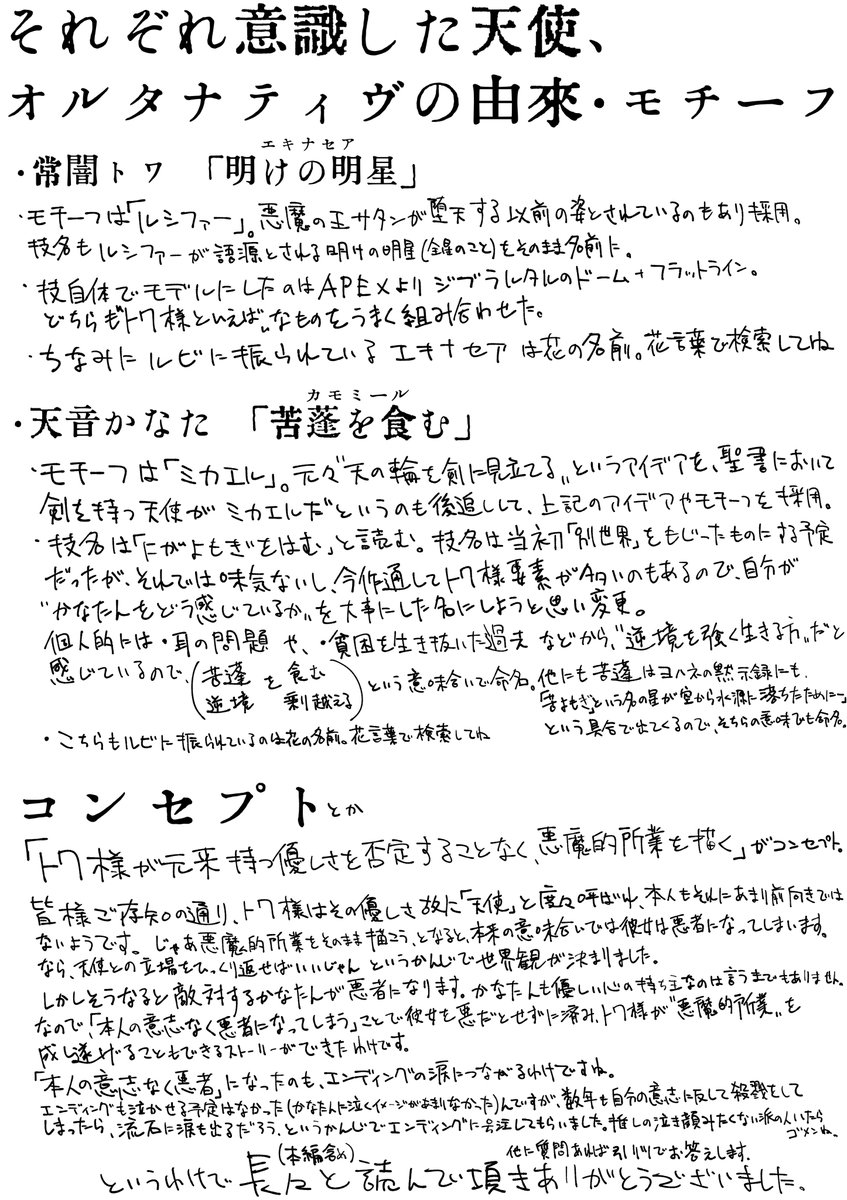 それぞれ意識した天使、
オルタナティヴの由來・モチーフ
エキナセア
・常闇トワ 「明けの明星」
・モチーフは「ルシファー」。悪魔の王サタンが堕天する以前の姿とされているのもあり採用。
技名もルシファーが語源とされる明けの明星(金星のこと)をそのまま名前に。
・技自体でモデルにしたのはAPEXよりジブラルタルのドーム+フラットライン。
どちらも"トワ様といえば"なものをうまく組み合わせた。
・ちなみにルビに振られているエキナセアは花の名前。花言葉で検索してね
カモミール
・天音かなた 「苦蓬を食む」
・モチーフは「ミカエル」。元々"天の輪を剣に見立てる"というアイデアを、聖書において
剣を持つ天使がミカエルだというのも後追しして、上記のアイデアやモチーフを採用。
・技名は「にがよもぎをはむ」と読む。技名は当初「別世界」をもじったものにする予定
だったが、それでは味気ないし、今作通してトワ様要素が多いのもあるので、自分が
"かなたんをどう感じているか"を大事にした名にしようと思い変更。
個人的には・耳の問題 や、・貧困を生き抜いた過去 などから、"逆境を強く生きる方"だと
感じているので、(苦蓬 を 食む 逆境 乗り越える)という意味合いで命名。他にも苦蓬はヨハネの黙示録にも、
「苦よもぎ」という名の星が空から水源に落ちたために…」
という具合で出てくるので、そちらの意味でも命名。
・こちらもルビに振られているのは花の名前。花言葉で検索してね
コンセプトとか
「トワ様が元来持つ優しさを否定することなく、悪魔的所業を描く」がコンセプト。
皆様ご存知の通り、トワ様はその優しさ故に「天使」と度々呼ばれ、本人もそれにあまり前向きでは
ないようです。じゃあ悪魔的所業をそのまま描こう、となると、本来の意味合いでは彼女は悪者になってしまいます。
なら、天使との立場をひっくり返せばいいじゃん というかんじで世界観が決まりました。
しかしそうなると敵対するかなたんが悪者になります。かなたんも優しい心の持ち主なのは言うまでもありません。
なので、「本人の意志なく悪者になってしまう」ことで彼女を悪だとせずに済み、トワ様が"悪魔的所業"を
成し遂げることもできるストーリーができたわけです。
「本人の意志なく悪者」になったのも、エンディングの涙につながるわけですね。
エンディングも泣かせる予定はなかった(かなたんに泣くイメージがあまりなかった)んですが、数年も自分の意志に反して殺戮をして
しまったら、流石に涙も出るだろう、というかんじでエンディングに号泣してもらいました。推しの泣き顔みたくない派の人いたら
ゴメンね、
(本編含め) 他に質問あれば引リツでお答えします。
というわけで長々と読んで頂きありがとうございました。